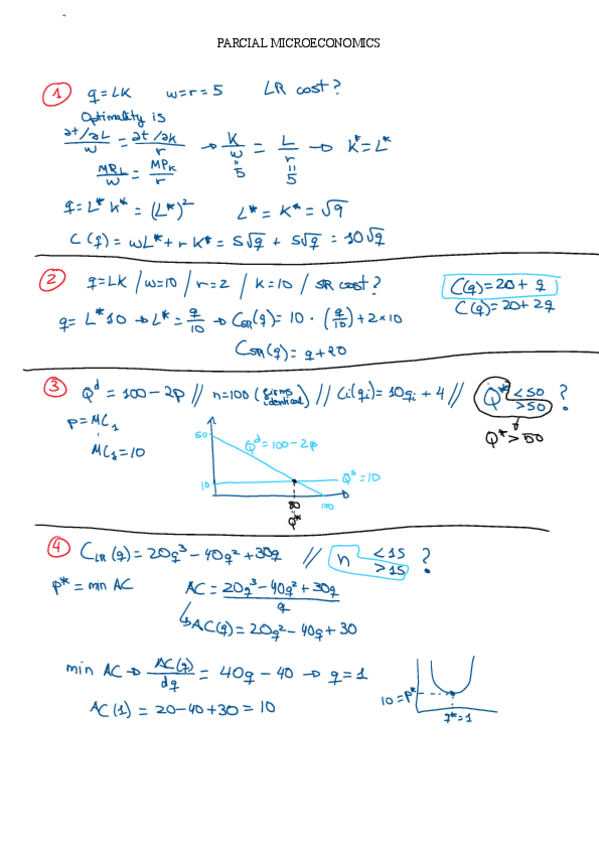 PARCIAL MICROECONOMICS
① q = LK w=r=5 LR cost?
Optimality is
∂t/∂L / w = ∂t/∂k / r → K/w = L/r → K* = L*
MPL/w = MPK/r
5 5
q = L* K* = (L*)² L* = K* = √q
C(q) = wL* + r K* = 5√q + 5√q = 10√q
② q = LK / w=10 / r=2 / k=10 / SR cost?
C(q) = 20 + q
C(q) = 20 + 2q
q = L* 10 → L* = q/10 → CSR(q) = 10 · (q/10) + 2×10
CSR(q) = q + 20
③ Qd = 100 - 2p // n=100 (firms identical) // Ci(qi) = 10qi + 4 // Q* <50 >50 ?
p = MC1
Q* > 50
MC1 = 10
50
Qd = 100 - 2p
10
Qs = 10
80
Q*
100
④ CLR(q) = 20q³ - 40q² + 30q // n <15 >15 ?
p* = min AC AC = 20q³ - 40q² + 30q / q
↳ AC(q) = 20q² - 40q + 30
min AC → AC(q)/dq = 40q - 40 → q = 1
AC(1) = 20 - 40 + 30 = 10
10 = p*
q* = 1